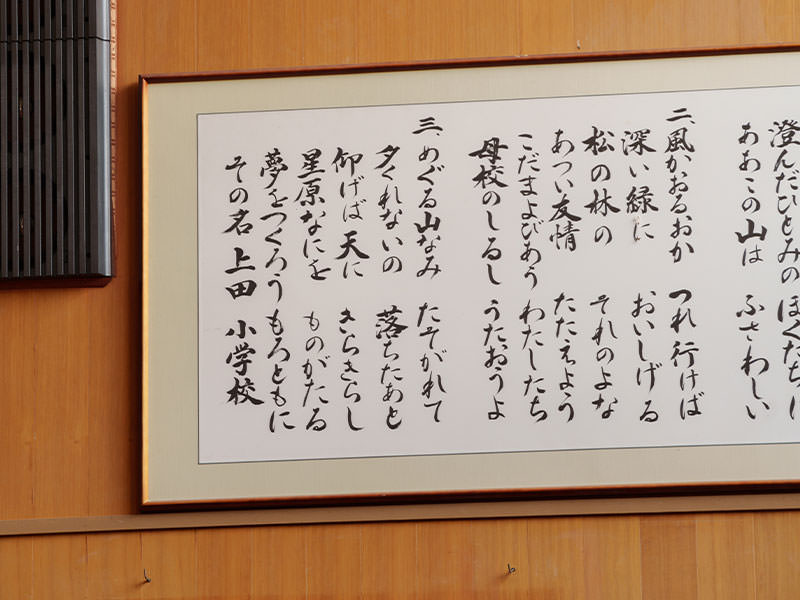 澄んだひとみの ぼくたちに
ああこの山は ふさわしい
二、風かおるおか つれ行けば
深い緑に おいしげる
松の林の それのよな
あつい友情 たたえよう
こだまよびあう わたしたち
母校のしるし うたおうよ
三、めぐる山なみ たそがれて
夕くれないの 落ちたあと
仰げば天に きらきらし
星原なにを ものがたる
夢をつくろう もろともに
その名 上田 小学校